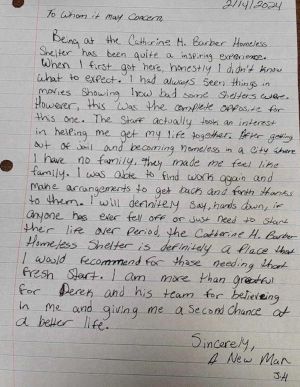 2/14/2024
To whom it may Concern
Being at the Catherine H. Barber Homeless
Shelter has been quite a inspiring experience.
When I first got here, honestly I didn't know
what to expect. I had always seen things in
movies showing how bad some shelters were.
However, this was the complete opposite for
this one. The staff actually took an interest
in helping me get my life together. After getting
out of jail and becoming homeless in a city where
I have no family. They made me feel like
family. I was able to find work again and
make arrangements to get back and forth thanks
to them. I will definitely say, hands down, if
anyone has ever fell off or just need to start
their life over period, the Catherine H. Barber
Homeless Shelter is definitely a place that
I would recommend for those needing that
fresh start. I am more than greatful
for Derek and his team for believeing
in me and giving me a second chance at
a better life.
Sincerely,
A New Man
JH